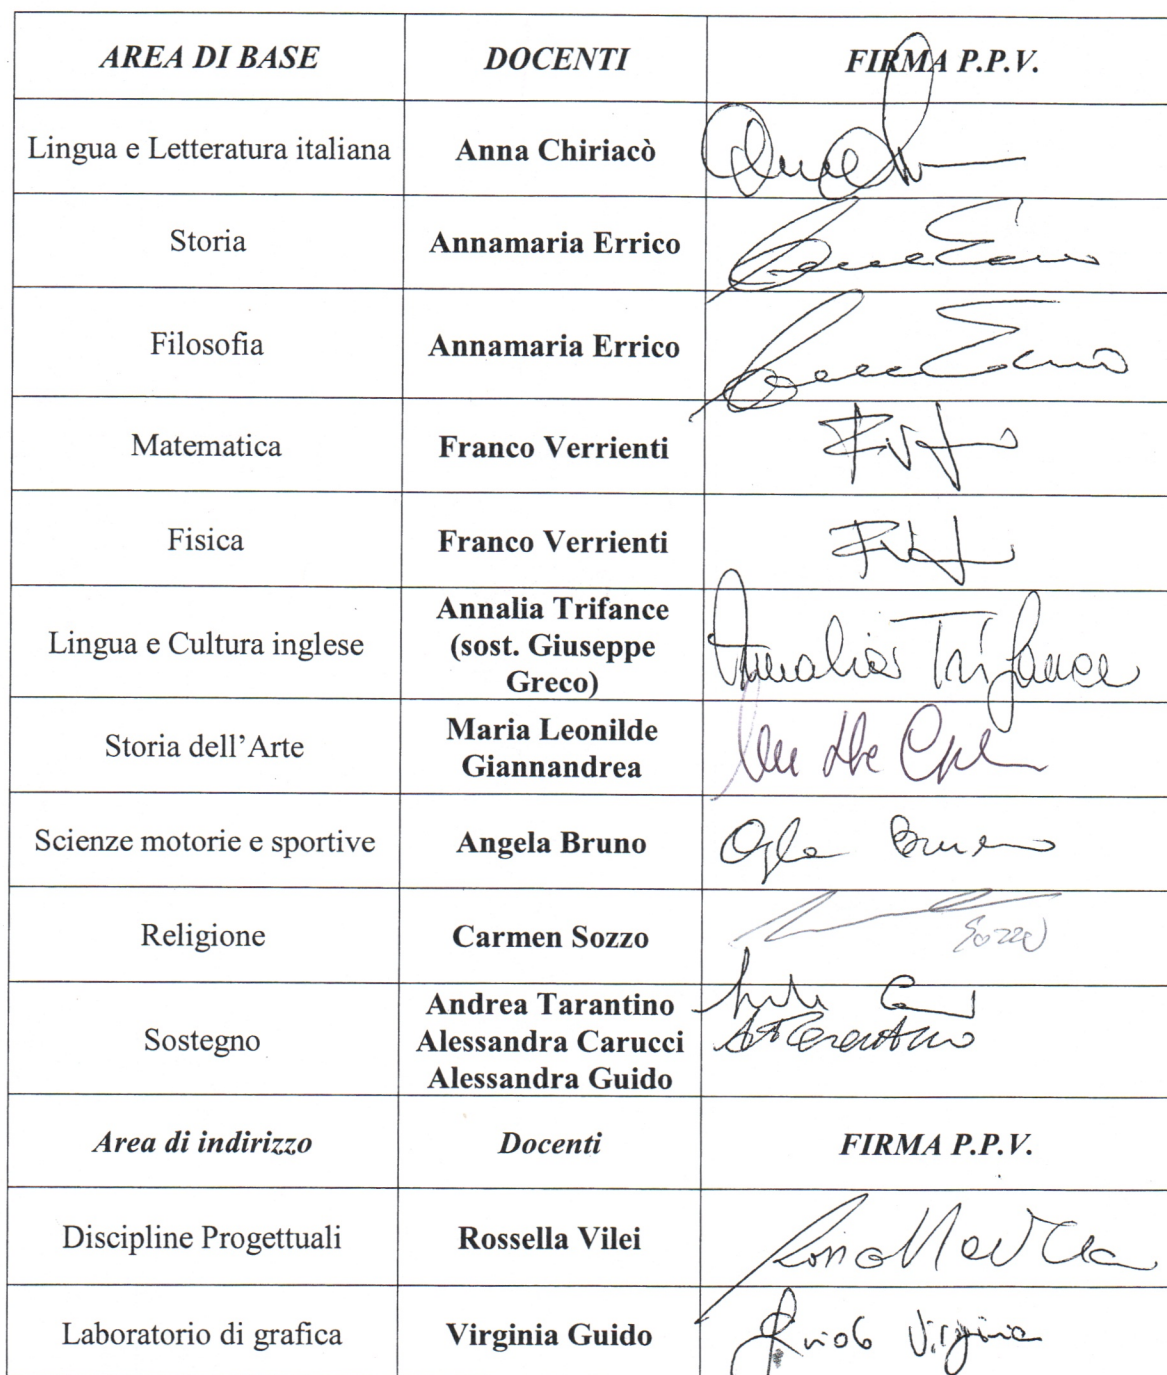 AREA DI BASE DOCENTI FIRMA P.P.V.
Lingua e Letteratura italiana Anna Chiriacò
Storia Annamaria Errico
Filosofia Annamaria Errico
Matematica Franco Verrienti
Fisica Franco Verrienti
Lingua e Cultura inglese Annalia Trifance
(sost. Giuseppe
Greco)
Annalia Trifance
Storia dell'Arte Maria Leonilde
Giannandrea
Scienze motorie e sportive Angela Bruno
Bruno
Religione Carmen Sozzo
Sozzo
Sostegno Andrea Tarantino
Alessandra Carucci
Alessandra Guido
Area di indirizzo Docenti FIRMA P.P.V.
Discipline Progettuali Rossella Vilei
Laboratorio di grafica Virginia Guido
Guido Virginia